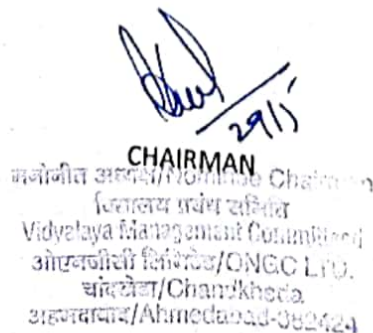 29/5
CHAIRMAN
मनोनीत अध्यक्ष/Nominee Chairman
विद्यालय प्रबंध समिति
Vidyalaya Management Committee
ओएनजीसी लिमिटेड/ONGC LTD.
चांदखेडा/Chandkheda
अहमदाबाद/Ahmedabad-382424